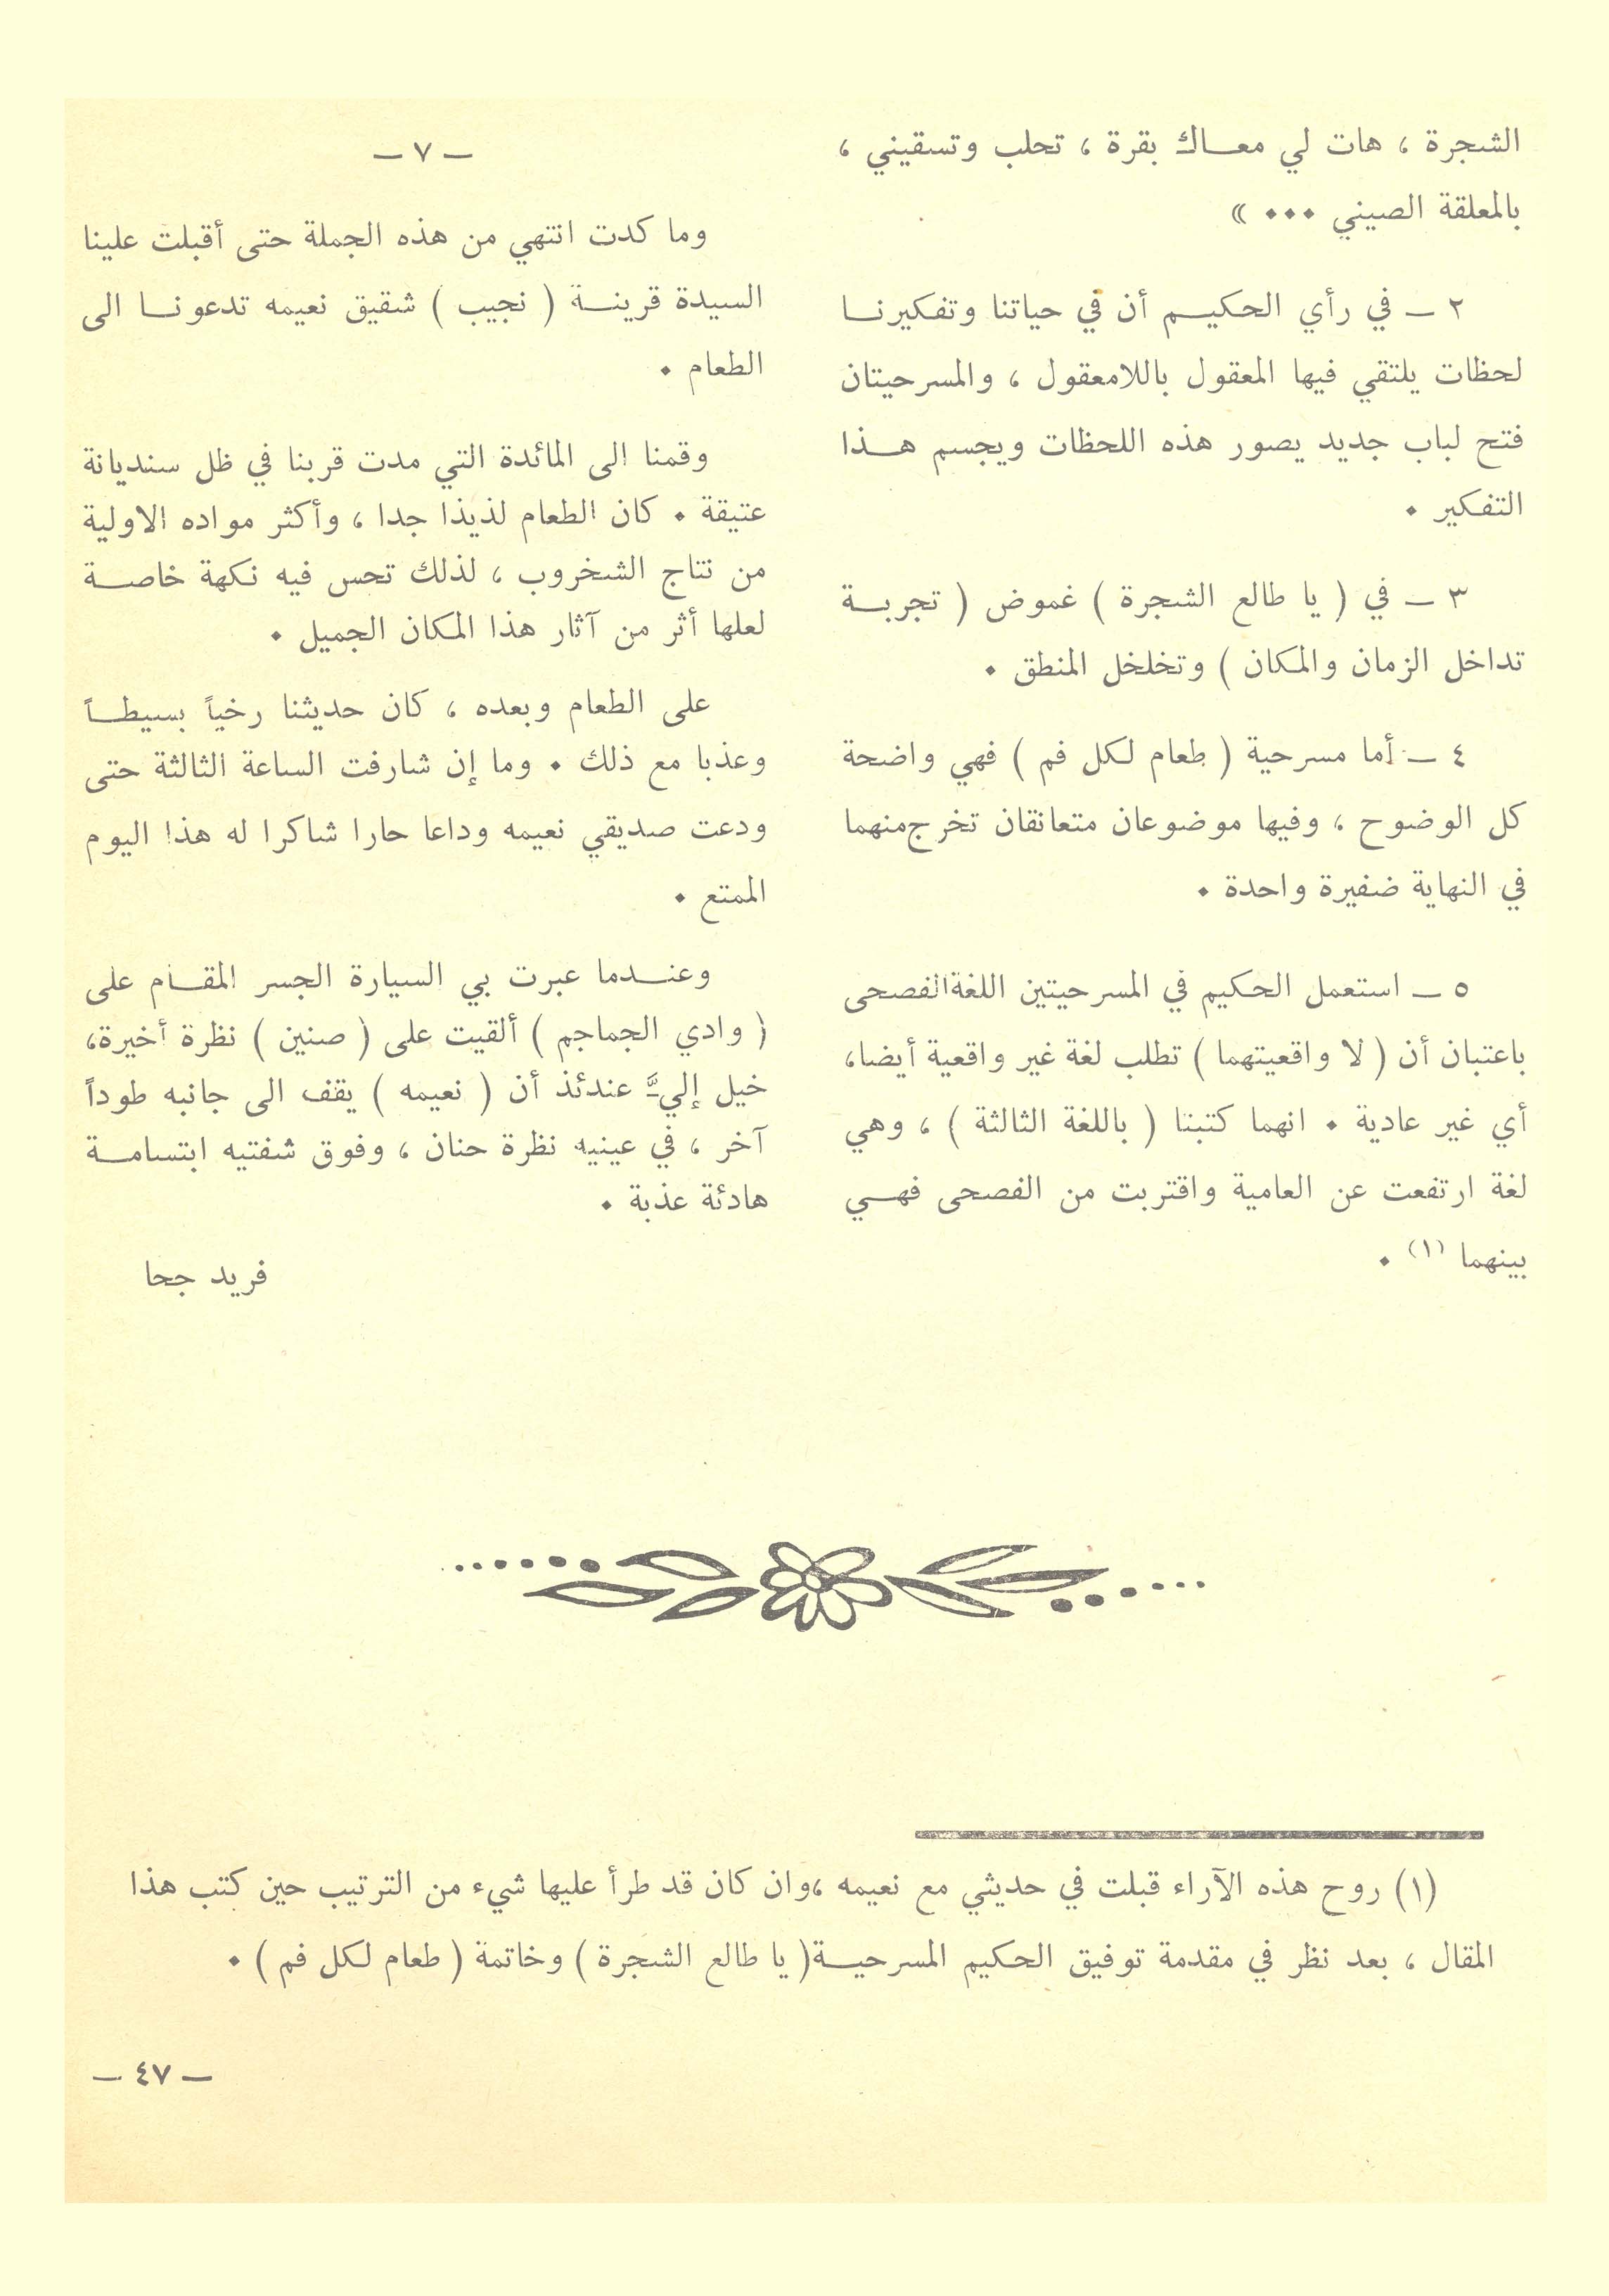 الشجرة ، هات لي معاك بقرة ، تحلب وتسقيني ،
بالمعلقة الصيني ••• »
٢ ــ في رأي الحكيم أن في حياتنا وتفكيرنا
لحظات يلتقي فيها المعقول باللامعقول ، والمسرحيتان
فتح لباب جديد يصور هذه اللحظات ويجسم هذا
التفكير •
٣ ــ في ( يا طالع الشجرة ) غموض ( تجربة
تداخل الزمان والمكان ) وتخلخل المنطق •
٤ ــ أما مسرحية ( طعام لكل فم ) فهي واضحة
كل الوضوح ، وفيها موضوعان متعانقان تخرج منهما
في النهاية ضفيرة واحدة •
٥ ــ استعمل الحكيم في المسرحيتين اللغة الفصحى
باعتبان أن ( لا واقعيتهما ) تطلب لغة غير واقعية أيضا،
أي غير عادية • انهما كتبتا ( باللغة الثالثة ) ، وهي
لغة ارتفعت عن العامية واقتربت من الفصحى فهي
بينهما (١) •
ــ ٧ ــ
وما كدت انتهي من هذه الجملة حتى أقبلت علينا
السيدة قرينة ( نجيب ) شقيق نعيمه تدعونا الى
الطعام •
وقمنا الى المائدة التي مدت قربنا في ظل سنديانة
عتيقة • كان الطعام لذيذا جدا ، وأكثر مواده الاولية
من نتاج الشخروب ، لذلك تحس فيه نكهة خاصة
لعلها أثر من آثار هذا المكان الجميل •
على الطعام وبعده ، كان حديثنا رخياً بسيطاً
وعذبا مع ذلك • وما إن شارفت الساعة الثالثة حتى
ودعت صديقي نعيمه وداعا حارا شاكرا له هذا اليوم
الممتع •
وعندما عبرت بي السيارة الجسر المقام على
( وادي الجماجم ) ألقيت على ( صنين ) نظرة أخيرة،
خيل إليَّ عندئذ أن ( نعيمه ) يقف الى جانبه طوداً
آخر ، في عينيه نظرة حنان ، وفوق شفتيه ابتسامة
هادئة عذبة •
فريد جحا
(١) روح هذه الآراء قبلت في حديثي مع نعيمه ،وان كان قد طرأ عليها شيء من الترتيب حين كتب هذا
المقال ، بعد نظر في مقدمة توفيق الحكيم المسرحية( يا طالع الشجرة ) وخاتمة ( طعام لكل فم ) •
ــ ٤٧ ــ